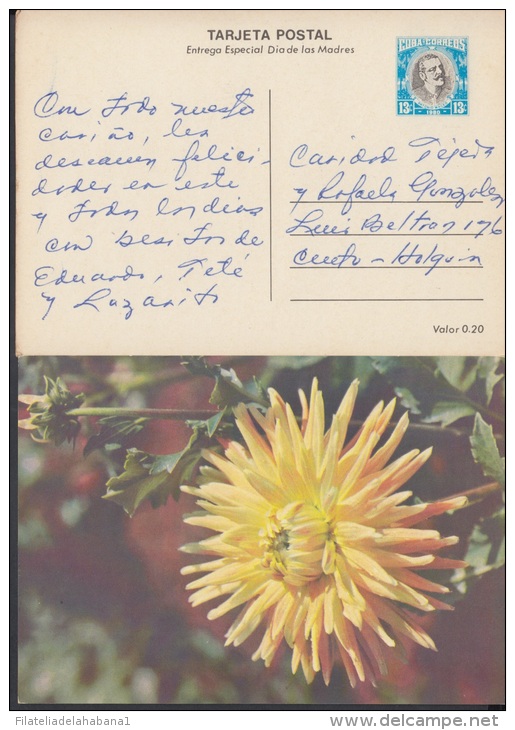 TARJETA POSTAL
Entrega Especial Dia de las Madres
CUBA-CORREOS
13¢ 13¢
1980
Con todo nuestro
cariño, les
desean felici-
dades en este
y todos los dias
con besitos de
Eduardo, Teté
y Lazarito
Caridad Tejeda
y Rafaela Gonzalez
Luis Beltran 176
Cueto - Holguin
Valor 0.20
Filateliadelahabana1
delcampe.net